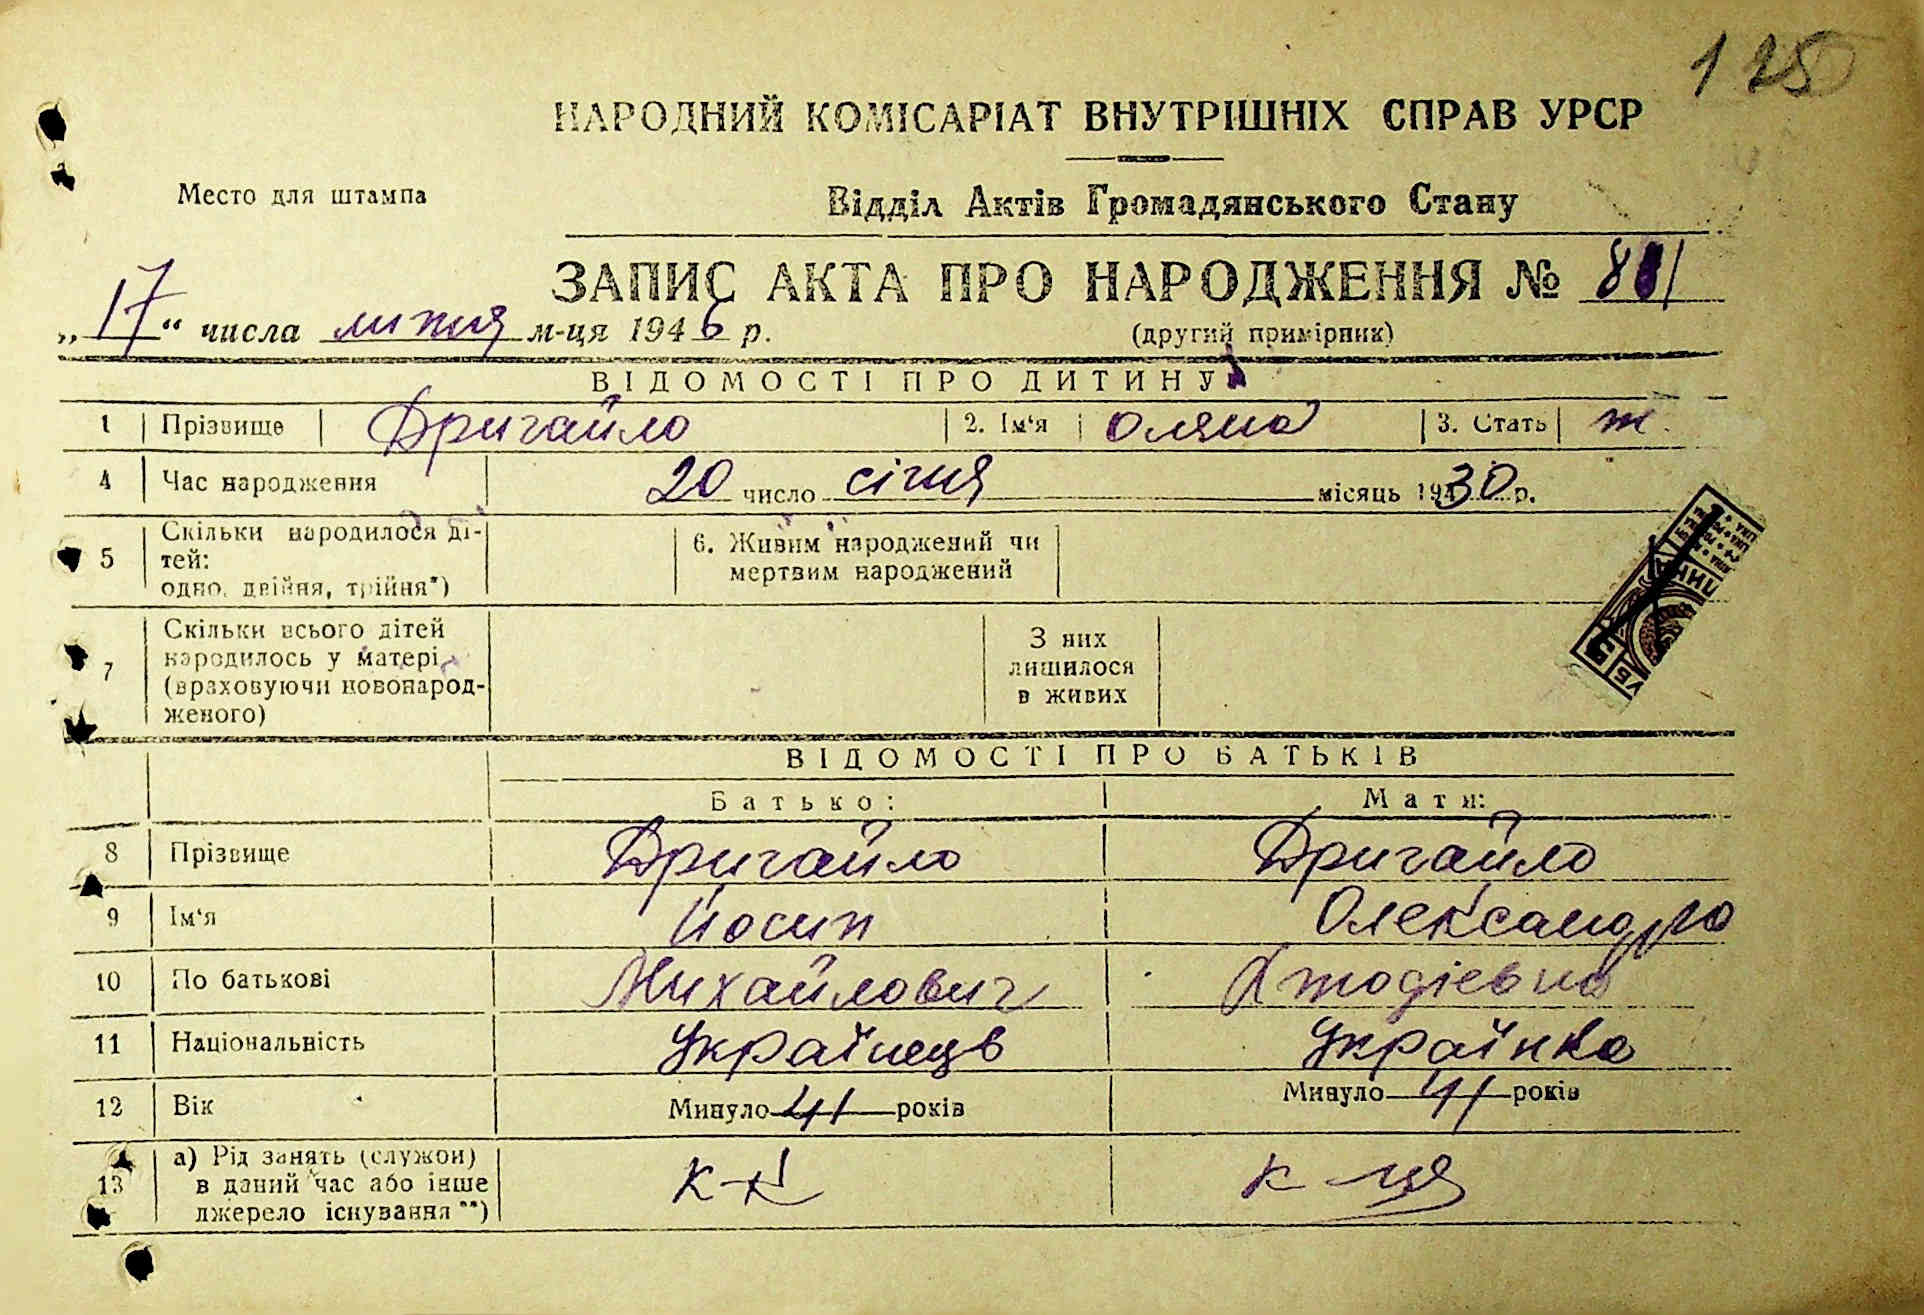 125
НАРОДНИЙ КОМІСАРІАТ ВНУТРІШНІХ СПРАВ УРСР
Место для штампа
Відділ Актів Громадянського Стану
ЗАПИС АКТА ПРО НАРОДЖЕННЯ № 811
„17“ числа липня м-ця 1946 р.
(другий примірник)
ВІДОМОСТІ ПРО ДИТИНУ
1 Прізвище Дригайло 2. Ім‘я Оляна 3. Стать ж
4 Час народження 20 число січня місяць 1930 р.
5 Скільки народилося ді-
тей:
одно, двійня, трійня*)
6. Живим народжений чи
мертвим народжений
7 Скільки всього дітей
народилось у матері
(враховуючи новонарод-
женого)
З них
лишилося
в живих
ВІДОМОСТІ ПРО БАТЬКІВ
Батько: Мати:
8 Прізвище Дригайло Дригайло
9 Ім‘я Йосип Олександра
10 По батькові Михайлович
11 Національність Українець Українка
12 Вік Минуло 41 років Минуло 41 років
13 а) Рід занять (служби)
в даний час або інше
джерело існування **)
к-к к-ця